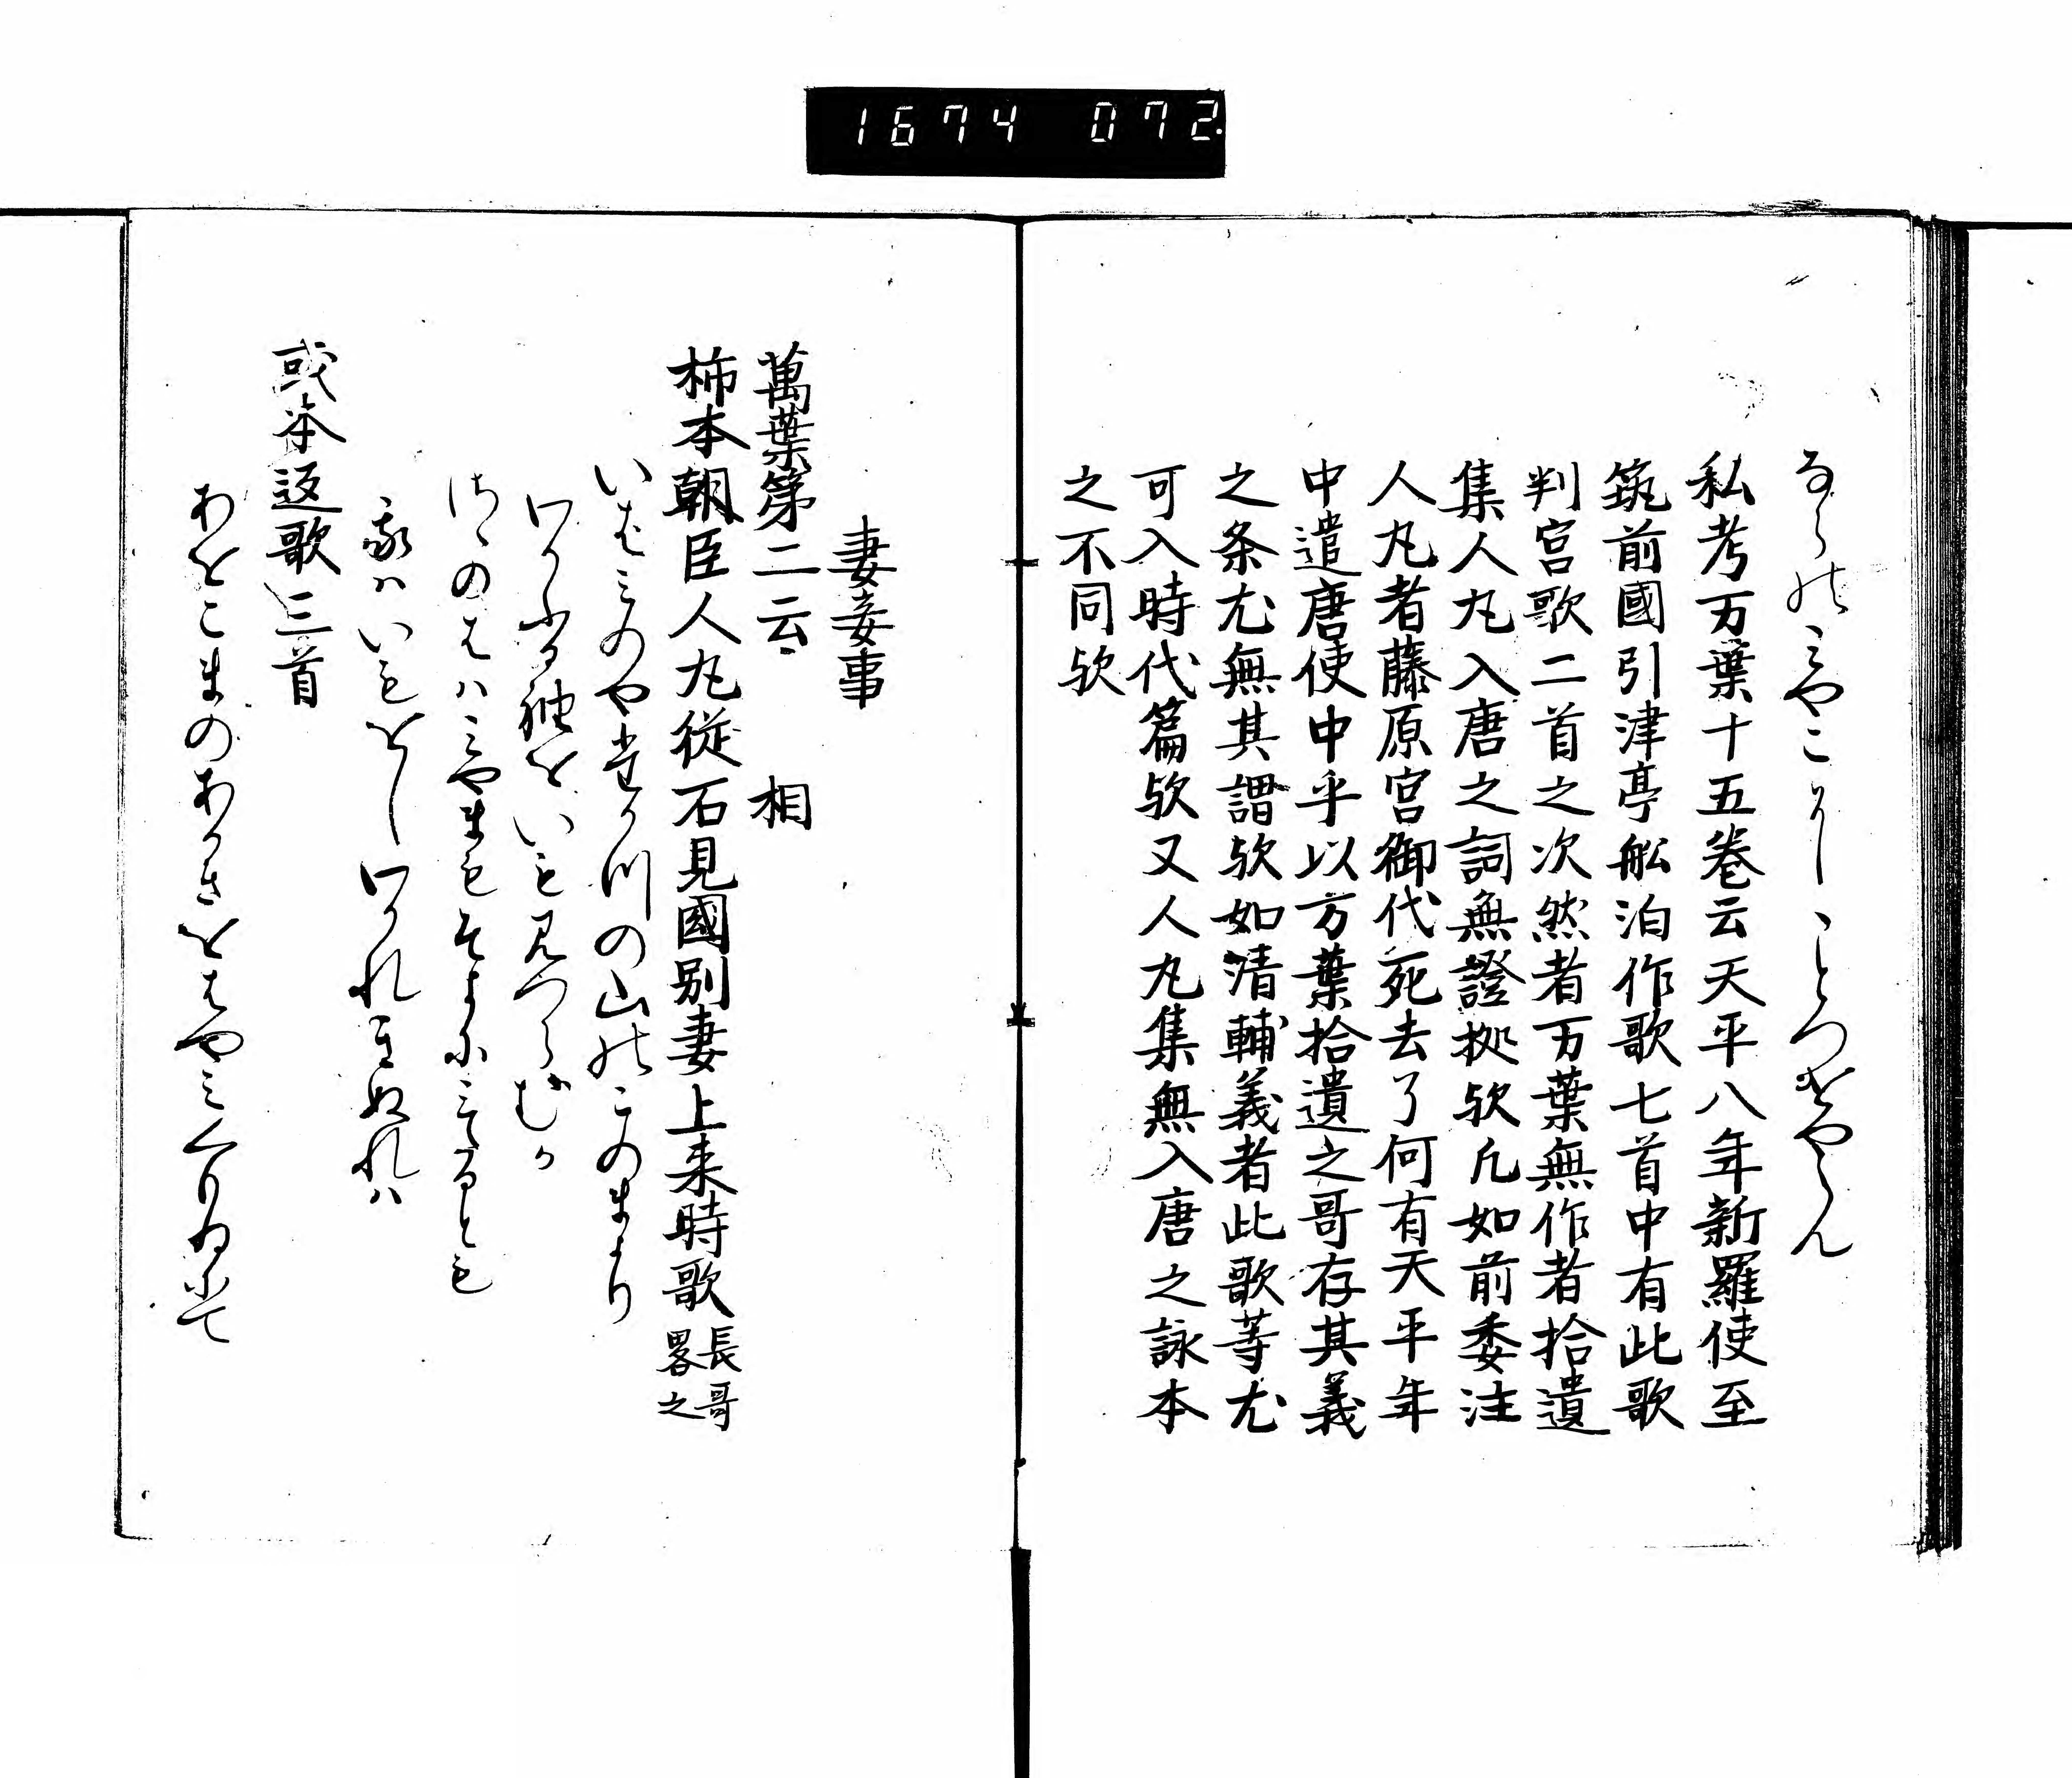 1674 072.
ならのみやこにことつけやらん
私考万葉十五巻云天平八年新羅使至
筑前國引津亭舩泊作歌七首中有此歌
判官歌二首之次然者万葉無作者拾遺
集人丸入唐之詞無證拠欤凡如前委注
人丸者藤原宮御代死去了何有天平年
中遣唐使中乎以万葉拾遺之哥存其義
之条尤無其謂欤如清輔義者此歌等尤
可入時代篇欤又人丸集無入唐之詠本
之不同欤
妻妾事
萬葉第二云 相
柿本朝臣人丸従石見國別妻上来時歌 長哥畧之
いはみのやたかつの山のこのまより
わかふる袖をいも見つらむか
さゝのはゝみやまもそよにみたるとも
我はいもをしわかれきぬれは
或本返歌三首
あをこまのあかきをはやみくもゐにて